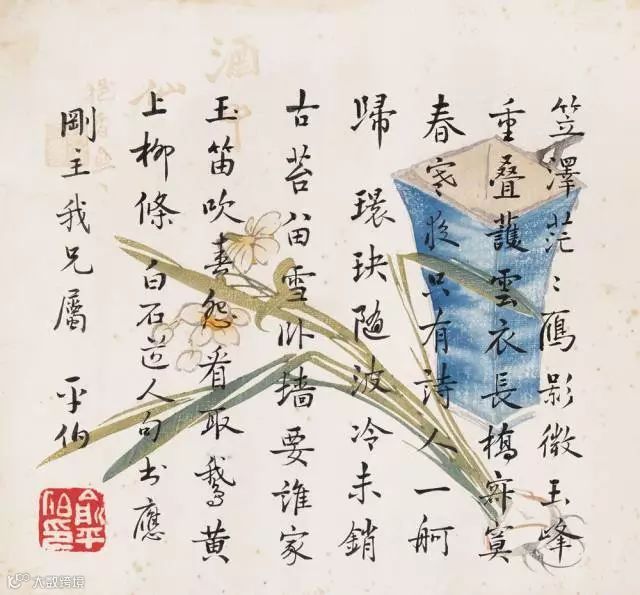 笠澤茫〻鴈影微玉峰
重叠護雲衣長橋寂寞
春寒夜只有詩人一舸
歸 環玦隨波冷未銷
古苔留雪卧墻要誰家
玉笛吹春怨看取鵞黄
上柳條 白石道人句书應
剛主我兄屬 平伯
俞平伯印
酒中仙
大数跨境